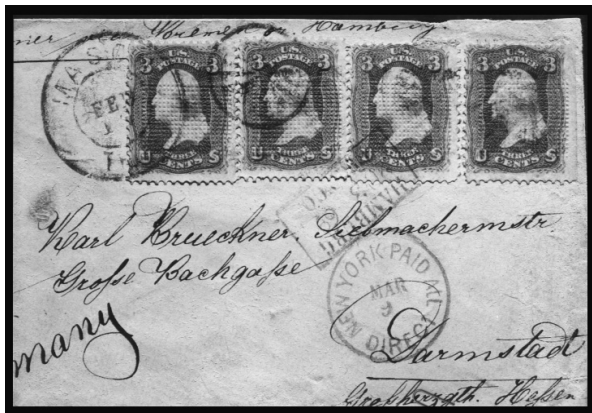 via Bremen or Hamburg.
3 U.S. POSTAGE 3
THREE CENTS
U S
3 U.S. POSTAGE 3
THREE CENTS
U S
3 U.S. POSTAGE 3
THREE CENTS
U S
3 U.S. POSTAGE 3
THREE CENTS
U S
FEB
Karl Krueckner, Siebmachermstr.
Große Bachgaße
NEW YORK PAID ALL
MAR
DIRECT
many
Darmstadt
Großherzgth. Hessen